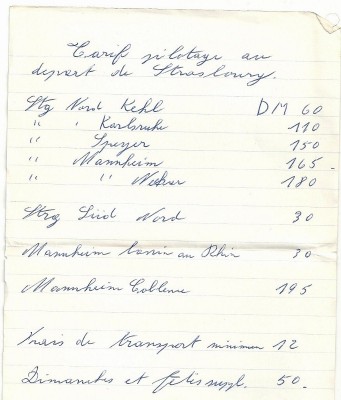 Tarif pilotage au
depart de Strasbourg.
Stg Nord Kehl DM 60
" " Karlsruhe 110
" Speyer 150
" Mannheim 165.
" " Neckar 180
Strg Süd Nord 30
Mannheim bassin au Rhin 30
Mannheim Coblence 195
Frais de transport minimum 12
Dimanches et fêtes suppl. 50.